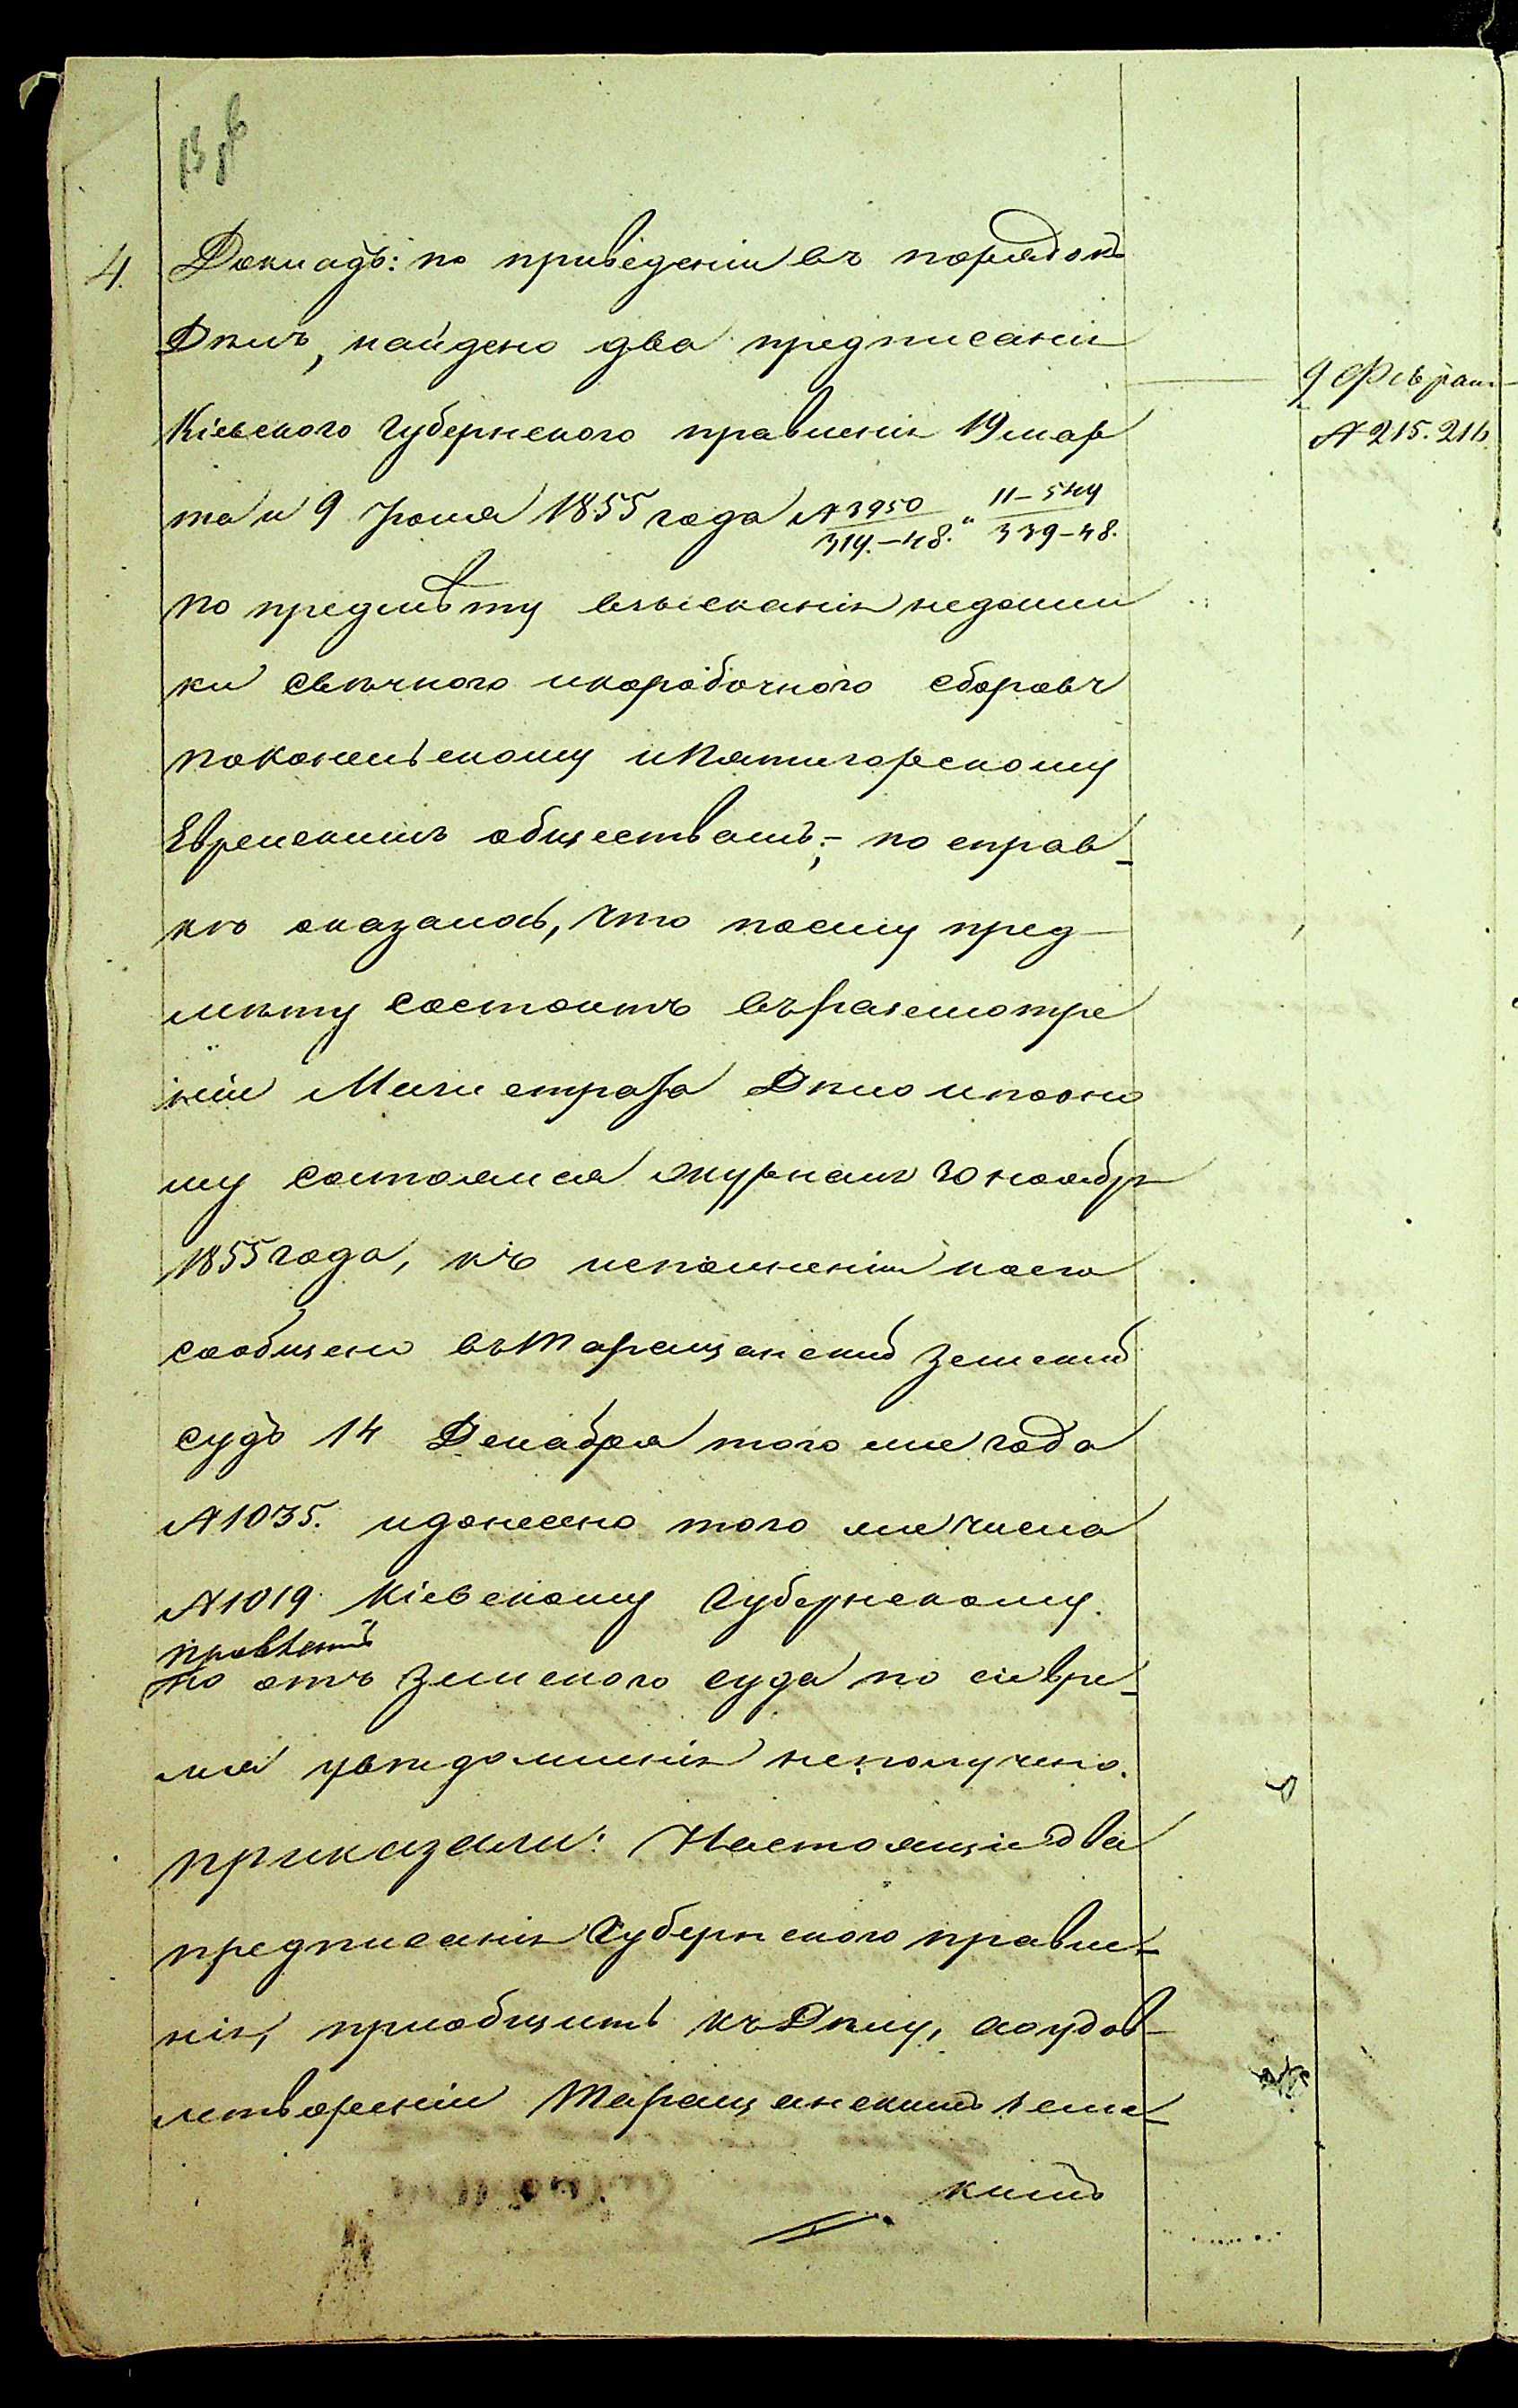 4. Докладъ: по приведеніи въ порядокъ
Дѣлъ, найдено два предписанія
9 Феврал
Кіевского Губернского правленія 19 мар
№ 215. 216.
та и 9 Іюля 1855 года № 3950/314.-48. "
339-48.
по предмѣту взысканія недоим
ки свѣчного и коробочного сборовъ
по
и Пятигорскому
Еврейскимъ обществамъ; - по справ-
кѣ оказалось, что посему пред-
мѣту состоитъ въ разсмотре
ніи Магистрата Дѣло и по оно
му состоялся журналъ 30 ноября
1855 года, къ исполненію коего
сообщено въ Таращанскій Земскій
судъ 14 Декабря того же года
№ 1035. и донесено того же числа
№ 1019 Кіевскому Губернскому.
правленію
но отъ Земского суда по сіе вре-
мя увѣдомленія неполучено.
приказали: Настоящіе два
предписанія Губернского правле-
нія, пріобщить къ Дѣлу, а о удов-
летвореніи Таращанскимъ Земс-
кимъ